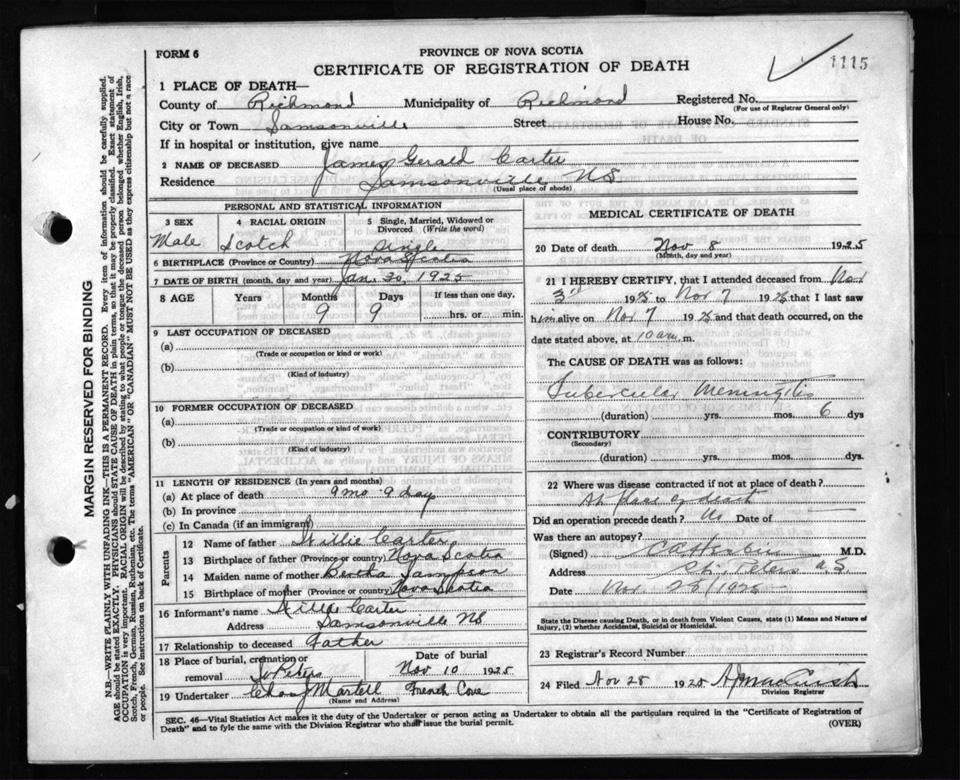 FORM 6
PROVINCE OF NOVA SCOTIA
CERTIFICATE OF REGISTRATION OF DEATH
1115
1 PLACE OF DEATH—
County of Richmond Municipality of Richmond Registered No.
(For use of Registrar General only)
City or Town Samsonville Street House No.
If in hospital or institution, give name
2 NAME OF DECEASED James Gerald Carter
Residence Samsonville N S
(Usual place of abode)
PERSONAL AND STATISTICAL INFORMATION
3 SEX 4 RACIAL ORIGIN 5 Single, Married, Widowed or Divorced (Write the word)
Male Scotch Single
6 BIRTHPLACE (Province or Country) Nova Scotia
7 DATE OF BIRTH (month, day and year) Jan. 30, 1925
8 AGE Years Months Days If less than one day,
9 9 hrs. or min.
9 LAST OCCUPATION OF DECEASED
(a)
(Trade or occupation or kind or work)
(b)
(Kind of industry)
10 FORMER OCCUPATION OF DECEASED
(a)
(Trade or occupation or kind of work)
(b)
(Kind of industry)
11 LENGTH OF RESIDENCE (In years and months)
(a) At place of death 9 mo 9 day
(b) In province
(c) In Canada (if an immigrant)
Parents
12 Name of father Willie Carter
13 Birthplace of father (Province or country) Nova Scotia
14 Maiden name of mother Bertha Sampson
15 Birthplace of mother (Province or country) Nova Scotia
16 Informant's name Willie Carter
Address Samsonville NS
17 Relationship to deceased Father
18 Place of burial, cremation or removal St Peters Date of burial Nov 10 1925
19 Undertaker Chas J Martell French Cove
(Name and Address)
MEDICAL CERTIFICATE OF DEATH
20 Date of death Nov 8 1925
(Month, day and year)
21 I HEREBY CERTIFY, that I attended deceased from Nov
3rd 1925 to Nov 7 1925 that I last saw
him alive on Nov 7 1925 and that death occurred, on the
date stated above, at 10 a m.
The CAUSE OF DEATH was as follows:
Tubercular Meningitis
(duration) yrs. mos. 6 dys
CONTRIBUTORY
(Secondary)
(duration) yrs. mos. dys.
22 Where was disease contracted if not at place of death?
At place of death
Did an operation precede death? No Date of
Was there an autopsy?
(Signed) M.D.
Address St. Peters
Date Nov 1925
State the Disease causing Death, or in death from Violent Causes, state (1) Means and Nature of
Injury, (2) whether Accidental, Suicidal or Homicidal.
23 Registrar's Record Number
24 Filed Nov 28 1925
Division Registrar
SEC. 46—Vital Statistics Act makes it the duty of the Undertaker or person acting as Undertaker to obtain all the particulars required in the "Certificate of Registration of
Death" and to fyle the same with the Division Registrar who shall issue the burial permit. (OVER)
MARGIN RESERVED FOR BINDING
N.B.—WRITE PLAINLY WITH UNFADING INK—THIS IS A PERMANENT RECORD. Every item of information should be carefully supplied.
AGE should be stated EXACTLY. PHYSICIANS should STATE CAUSE OF DEATH in plain terms, so that it may be properly classified. Exact statement of
OCCUPATION is very important. RACIAL ORIGIN will be described by stating to what people or tongue the deceased person belonged whether English, Irish,
Scotch, French, German, Russian, Ruthenian, etc. The terms "AMERICAN" or "CANADIAN" MUST NOT BE USED as they express citizenship but not a race
or people. See instructions on back of Certificate.